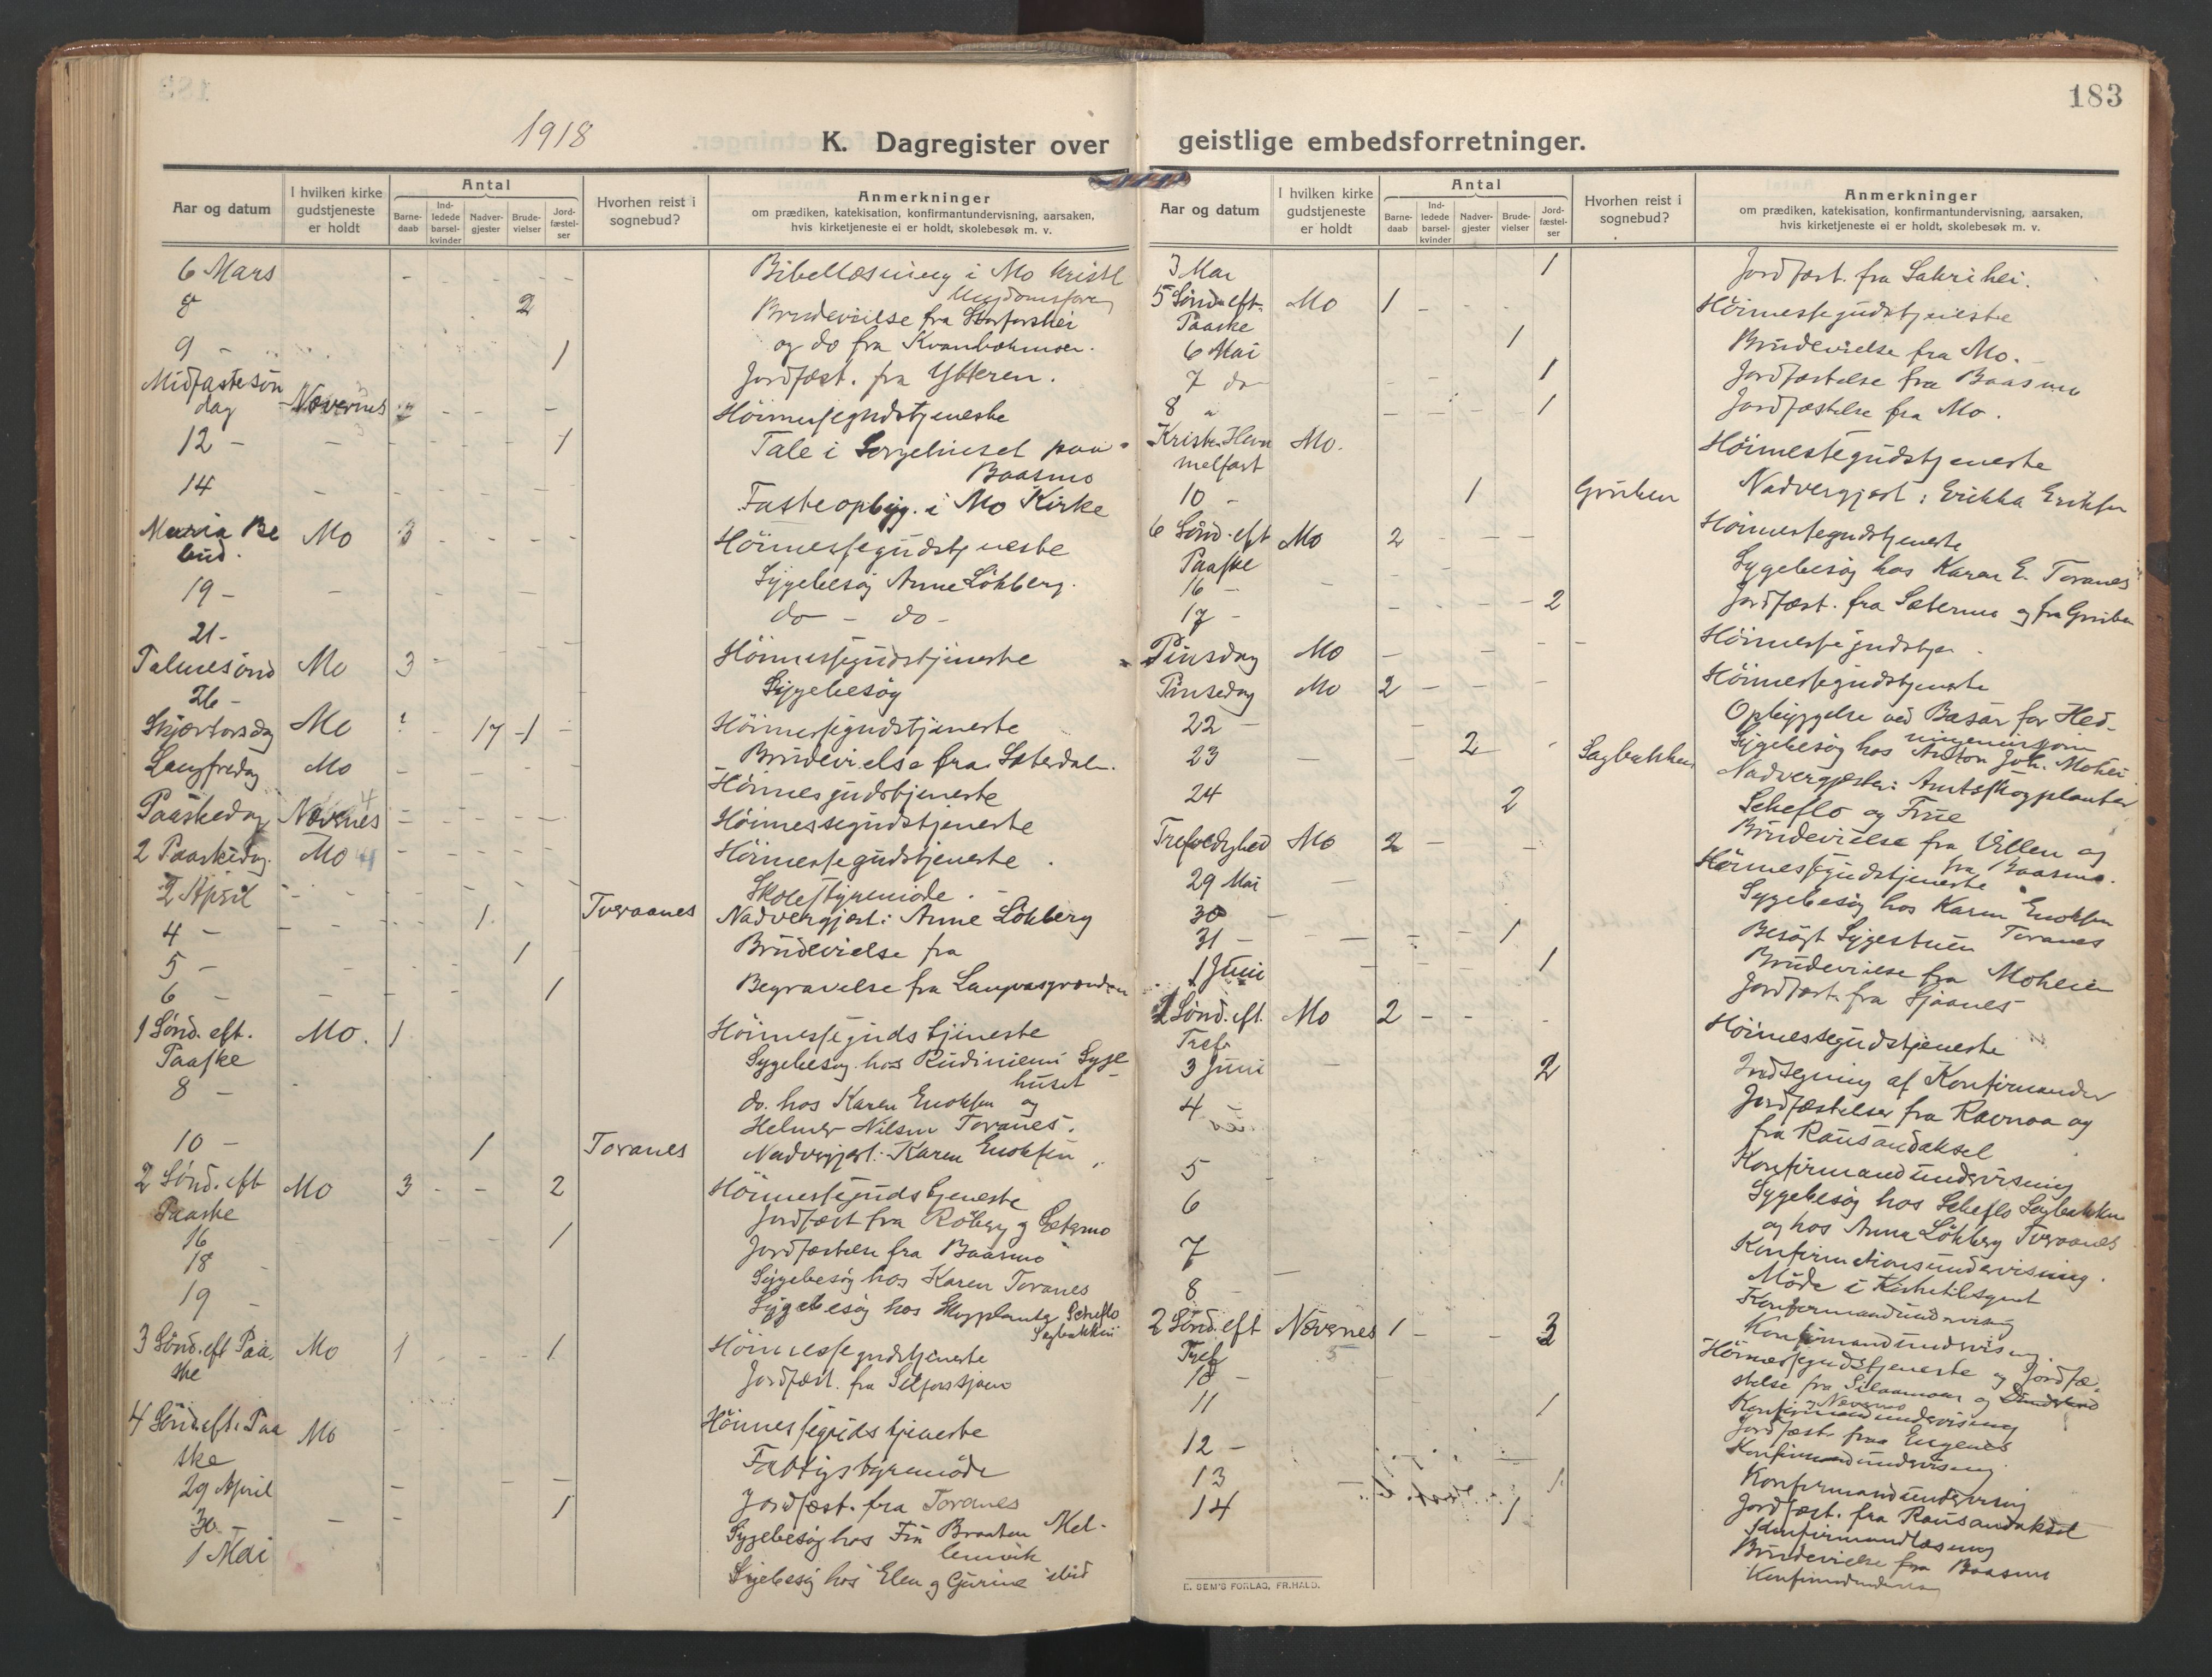 183
1918
K. Dagregister over geistlige embedsforretninger.
Aar og datum
I hvilken kirke gudstjeneste er holdt
Antal
Barne-daab
Ind-ledede barsel-kvinder
Nadver-gjester
Brude-vielser
Jord-fæstel-ser
Hvorhen reist i sognebud?
Anmerkninger
om prædiken, katekisation, konfirmantundervisning, aarsaken,
hvis kirketjeneste ei er holdt, skolebesøk m. v.
6 Mars Bibellæsning i Mo kristl
Ungdomsforen
8 2 Brudevielse fra Storforshei
og do fra
9 - 1 Jordfæst. fra Ytteren.
Midfastesøn
dag Nævernes Höimessegudstjeneste
12 - 1 Tale i Sørgehuset paa
Baasmo
14 Fasteopbyg. i Mo Kirke
Maria Be
bud. Mo 3 Höimessegudstjeneste
19 - Sygebesög Anne Lökberg.
21 - do - do -
Palmesönd Mo 3 Höimessegudstjeneste
26 - Sygebesög
Skjærtorsdag Mo 17 1 Höimessegudstjeneste
Brudevielse fra Sæterdalen.
Langfredag Mo Höimesgudstjeneste
Paaskedag Nævernes 4 Höimessegudstjeneste
2 Paaskedag. Mo Höimessegudstjeneste.
2 April Skolestyremöde.
4 - 1 Tveraanes Nadvergjest: Anne Lökberg
5 - 1 Brudevielse fra
6 - 1 Begravelse fra
1 Sönd. eft.
Paaske Mo. 1 Höimessegudstjeneste
Sygebesög hos Rudiniemi Syge
huset
8 - do. hos Karen Enoksen og
Helmer Nilsen Toranes.
10 - 1 Toranes Nadvergjest: Karen Enoksen
2 Sönd. eft
Paaske Mo 3 2 Höimessegudstjeneste
Jordfæst fra Röberg og Sætermo
16 1 Jordfæstelse fra Baasmo
18 - Sygebesög hos Karen Toranes
19 - Sygebesög hos Skogplanter Scheflo
Sagbakken
3 Sönd. eft Paa
ske Mo 1 1 Höimessegudstjeneste
Jordfæst. fra Selforstjern
4 Sönd. eft. Paa
ske Mo Höimessegudstjeneste
29 April Fattigstyremöde
30 - 1 Jordfæst. fra Toranes
1 Mai Sygebesög hos Fin Braaten Mel-
lemvik
Sygebesög hos Elen og Gjurine
Aar og datum
I hvilken kirke gudstjeneste er holdt
Antal
Barne-daab
Ind-ledede barsel-kvinder
Nadver-gjester
Brude-vielser
Jord-fæstel-ser
Hvorhen reist i sognebud?
Anmerkninger
om prædiken, katekisation, konfirmantundervisning, aarsaken,
hvis kirketjeneste ei er holdt, skolebesøk m. v.
3 Mai 1 Jordfæst. fra
5 Sönd. eft.
Paaske Mo 1 Höimessegudstjeneste
6 Mai 1 Brudevielse fra Mo.
7 do 1 Jordfæstelse fra Baasmo
8 " 1 Jordfæstelse fra Mo.
Kristi Him
melfart Mo. Höimessegudstjeneste
10 - 1 Gruben Nadvergjest: Erikka Eriksen
6 Sönd. eft
Paaske Mo 2 Höimessegudstjeneste
16 - Sygebesög hos Karen E. Toranes
17 - 2 Jordfæst. fra Sætermo og fra Gruben
Pinsdag Mo Höimessegudstjen.
Pinsedag Mo 2 Höimessegudstjeneste
22 - Opbyggelse ved Basar for Hed-
ningemisjon
23 2 Sagbakken Sygebesög hos Anton Joh. Mohei
Nadvergjester: Amtsskogplanter
Scheflo og Frue
24 2 Brudevielse fra Villen og
fra Baasmo.
Trefoldighed Mo 2 Höimessegudstjeneste
29 Mai Sygebesög hos Karen Enoksen
Toranes
30 - Besögt Sygestuen
31 - 1 Brudevielse fra Moheien
1 Juni 1 Jordfæst. fra Sjaanes
1 Sönd. eft.
Tref. Mo 2 Höimessegudstjeneste
Indtegning af Konfirmander
3 Juni 2 Jordfæstelser fra Ravnaa og
fra Rausandaksel
4 - Konfirmandundervisning
Sygebesög hos Scheflo Sagbakken
og hos Anna Lökberg Tveraanes
5 Konfirmationsundervisning.
6 Möde i Kirketilsynet
7 Konfirmandundervisning
8 - Konfirmandundervisning.
2 Sönd. eft
Tref Nævernes 5 1 3 Höimessegudstjeneste og Jordfæ-
stelse fra og Dunderland
og Nævernes
10 - Konfirmandundervisning
11 1 Jordfæst. fra Engenes
Konfirmandundervisning
12 - Konfirmandundervisning
13 1 Jordfæst. fra Rausandaksel
Konfirmandlæsning
14 1 Brudevielse fra Baasmo
Konfirmandundervisning
E. SEM'S FORLAG, FR.HALD.